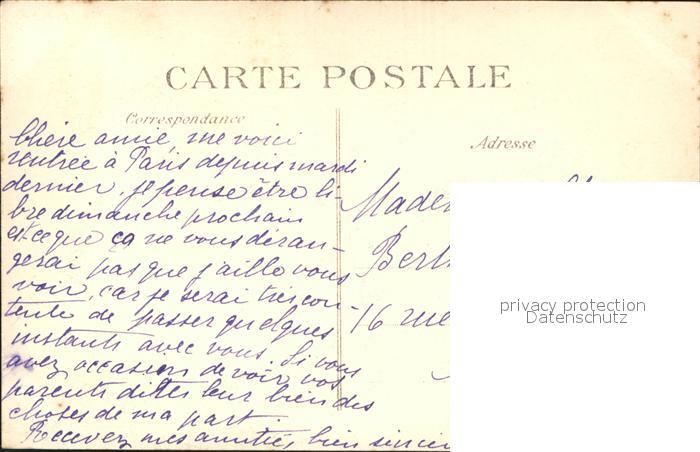 CARTE POSTALE
Correspondance
Adresse
Chère amie, me voici
rentrée à Paris depuis mardi
dernier, je pense être li-
bre dimanche prochain
est-ce que ça ne vous déran-
gerai pas que j'aille vous
voir, car je serai très con-
tente de passer quelques
instants avec vous. Si vous
avez occasion de voir vos
parents dites leur bien des
choses de ma part.
Recevez mes amitiés bien sincè
Madem
Berth
16 rue
privacy protection
Datenschutz